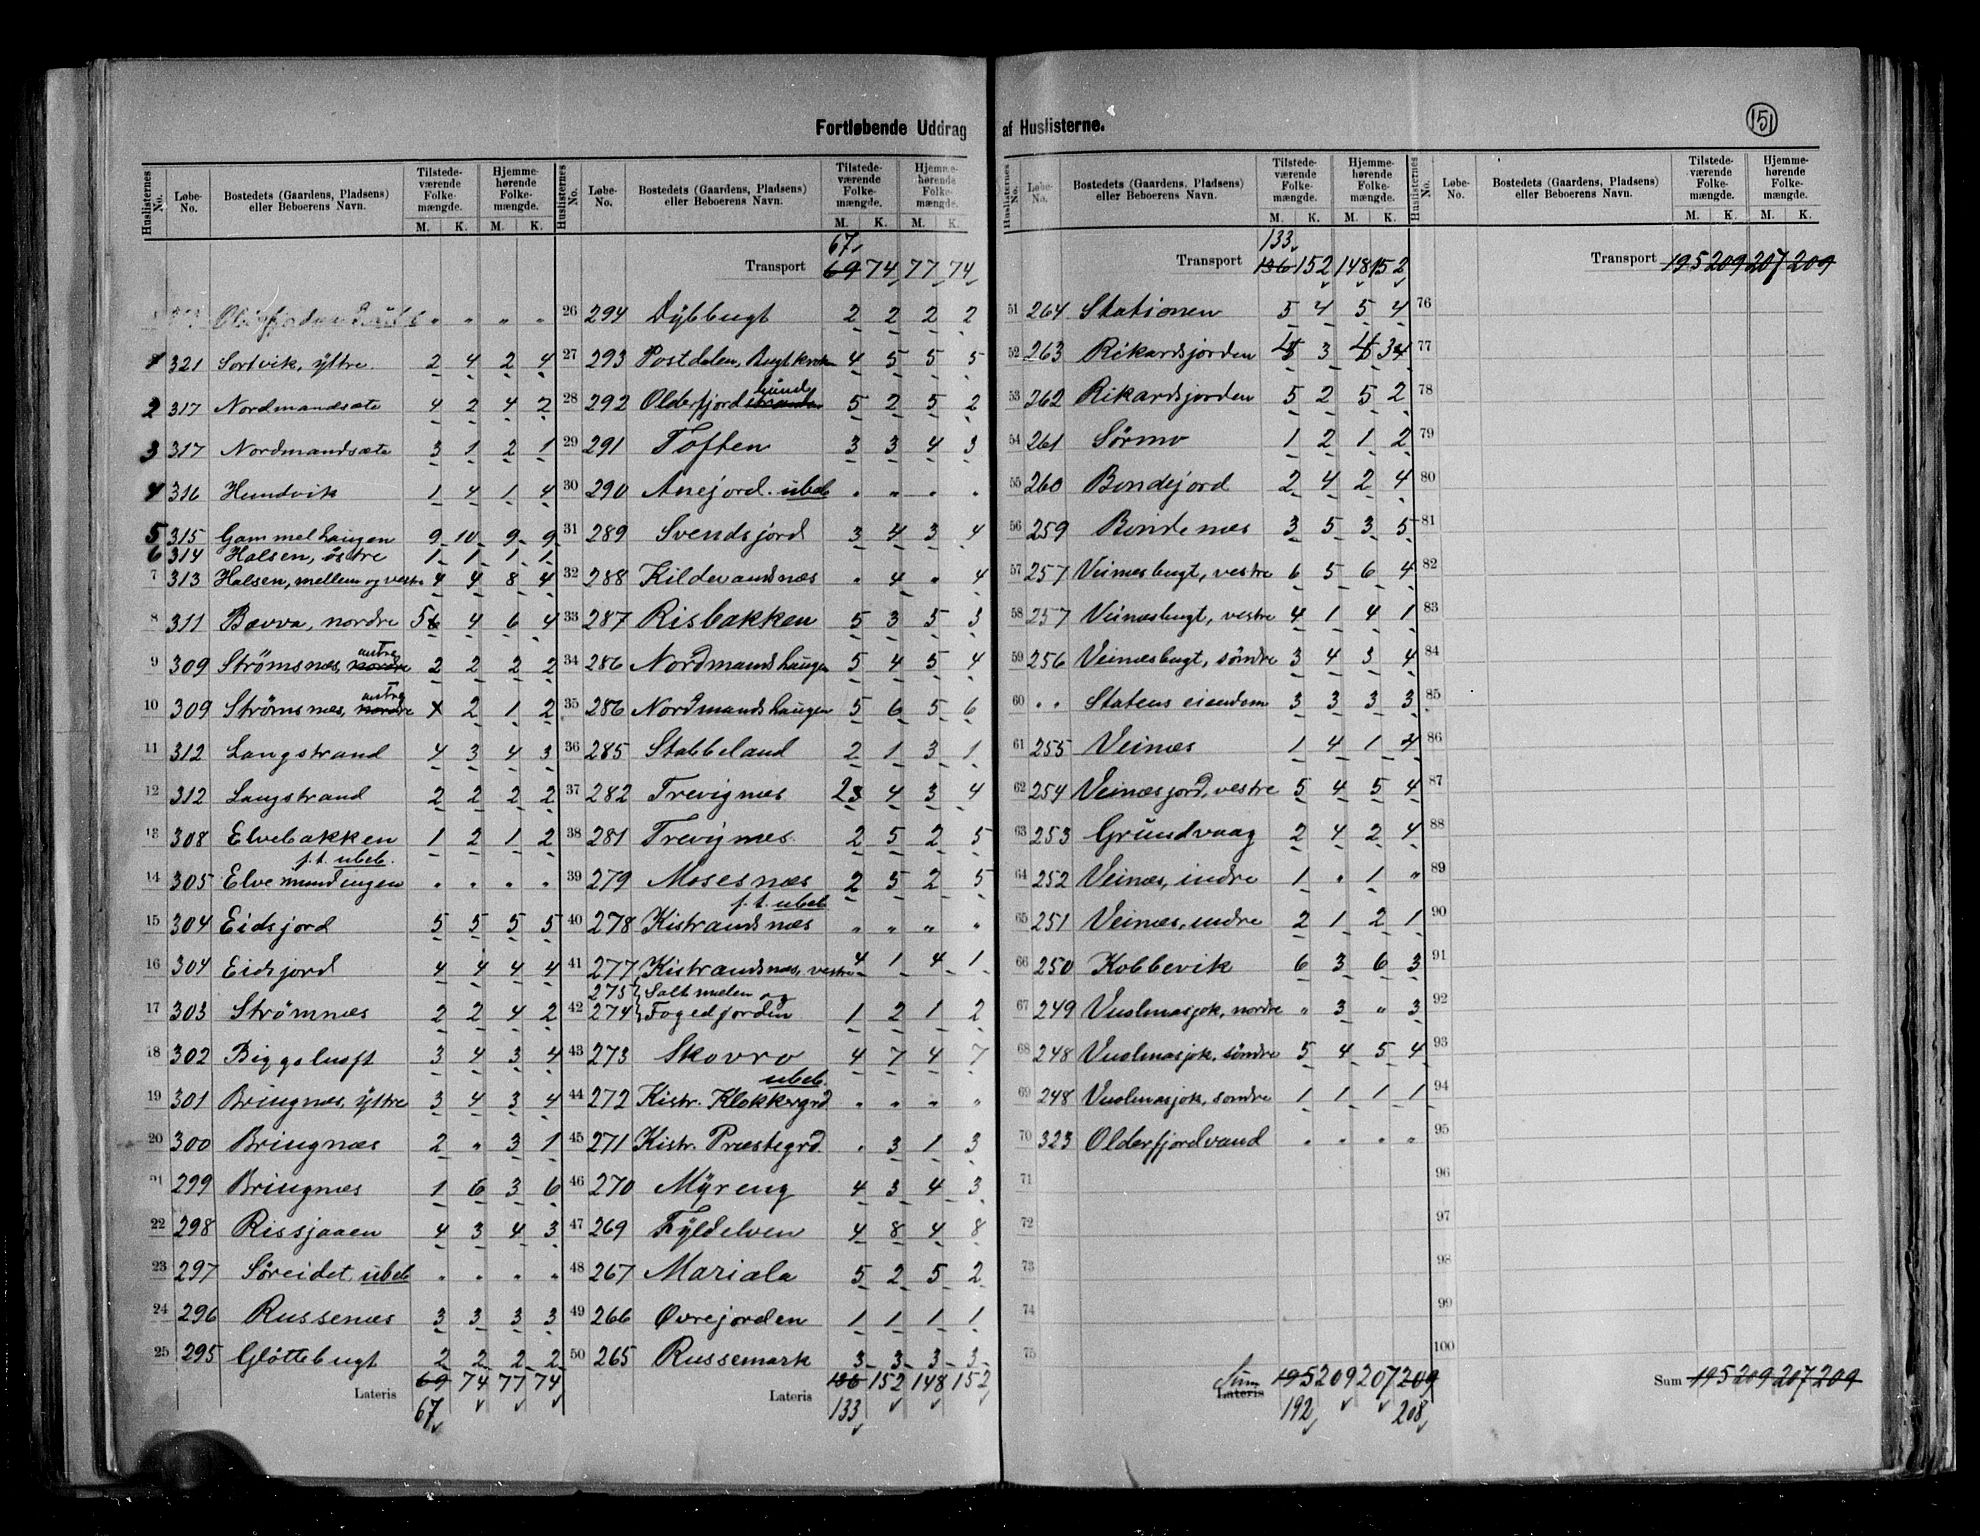 Fortløbende Uddrag af Huslisterne.
151
Huslisternes No. Løbe-No. Bostedets (Gaardens, Pladsens) eller Beboerens Navn. Tilstedeværende Folkemængde. M. K. Hjemmehørende Folkemængde. M. K.
321 Sortvik, ÿtre 2 4 2 4
2 317 Nordmandsæte 4 2 4 2
3 317 Nordmandsæte 3 1 2 1
4 316 Hundvik 1 4 1 4
5 315 Gammelhaugen 9 10 9 9
6 314 Halsen, östre 1 1 1 1
7 313 Halsen, mellem og vestre 4 4 8 4
8 311 Bævva, nordre 5 4 6 4
9 309 Strömsnæs, nordre 2 2 2 2
10 309 Strömsnæs, nordre 2 1 2
11 312 Langstrand 4 3 4 3
12 312 Langstrand 2 2 2 2
13 308 Elvebakken 1 2 1 2
f. t. ubeb.
14 305 Elvemundingen " " " "
15 304 Eidsjord 5 5 5 5
16 304 Eidsjord 4 4 4 4
17 303 Strømnæs 2 2 4 2
18 302 Biggoluoft 3 4 3 4
19 301 Bringnæs, ÿtre 3 4 3 4
20 300 Bringnæs 2 " 3 1
21 299 Bringnæs 1 6 3 6
22 298 Rissjaaen 4 3 4 3
23 297 Söreidet, ubeb " " " "
24 296 Russenæs 3 3 3 3
25 295 Gløttebugt 2 2 2 2
Lateris 69 74 77 74
67
67
Transport 69 74 77 74
26 294 Dÿbbugt 2 2 2 2
27 293 Postdalen, 4 5 5 5
bund
28 292 Olderfjordstranden 5 2 5 2
29 291 Toften 3 3 4 3
30 290 Anejord. ubeb " " " "
31 289 Svendsjord 3 4 3 4
32 288 Kildevandsnæs " 4 " 4
33 287 Risbakken 5 3 5 3
34 286 Nordmandshaugen 5 4 5 4
35 286 Nordmandshaugen 5 6 5 6
36 285 Stabbeland 2 1 3 1
37 282 Trevignæs 2 4 3 4
38 281 Trevignæs 2 5 2 5
39 279 Mosesnæs 2 5 2 5
f. t. ubeb
40 278 Kistrandsnæs " " " "
41 277 Kistrandsnæs, vestre 4 1 4 1
275 Saltmælen og
42 274 Fogedjorden 1 2 1 2
43 273 Skovro 4 7 4 7
ubeb.
44 272 Kistr. Klokkergrd " " " "
45 271 Kistr. Præstegrd " 3 1 3
46 270 Mÿreng 4 3 4 3
47 269 Fÿldelven 4 8 4 8
48 267 Mariala 5 2 5 2
49 266 Øvrejorden 1 1 1 1
50 265 Russemark 3 3 3 3
Lateris 136 152 148 152
133
133
Transport 136 152 148 152
51 264 Stationen 5 4 5 4
52 263 Rikardsjorden 4 3 4 3
53 262 Rikardsjorden 5 2 5 2
54 261 Sörmo 1 2 1 2
55 260 Bondejord 2 4 2 4
56 259 Bondenæs 3 5 3 5
57 257 Veinæsbugt, vestre 6 5 6 4
58 257 Veinæsbugt, vestre 4 1 4 1
59 256 Veinæsbugt, söndre 3 4 3 4
60 " " Statens eiendom 3 3 3 3
61 255 Veinæs 1 4 1 4
62 254 Veinæsjord, vestre 5 4 5 4
63 253 Grundvaag 2 4 2 4
64 252 Veinæs, indre 1 " 1 "
65 251 Veinæs, indre 2 1 2 1
66 250 Kobbevik 6 3 6 3
67 249 Vuolmasjok, nordre " 3 " 3
68 248 Vuolmasjok, söndre 5 4 5 4
69 248 Vuolmasjok, søndre 1 1 1 1
70 323 Olderfjordvand " " " "
71
72
73
74
75
Sum
Lateris 195 209 207 209
192 208
Transport 195 209 207 209
76
77
78
79
80
81
82
83
84
85
86
87
88
89
90
91
92
93
94
95
96
97
98
99
100
Sum 195 209 207 209